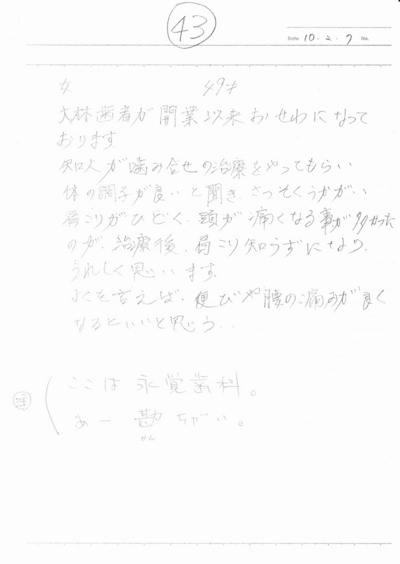 43
Date 10・2・7 No.
女 49才
大林歯者が開業以来おせわになって
おります
知人が噛み合せの治療をやってもらい
体の調子が良いと聞き、さっそくうかがい
肩こりがひどく、頭が痛くなる事が多かった
のが、治療後、肩こり知らずになり、
うれしく思います。
よくを言えば、便ぴや腰の痛みが良く
なるといいと思う..
ここは永覚歯科。
あー勘ちがい。
かん